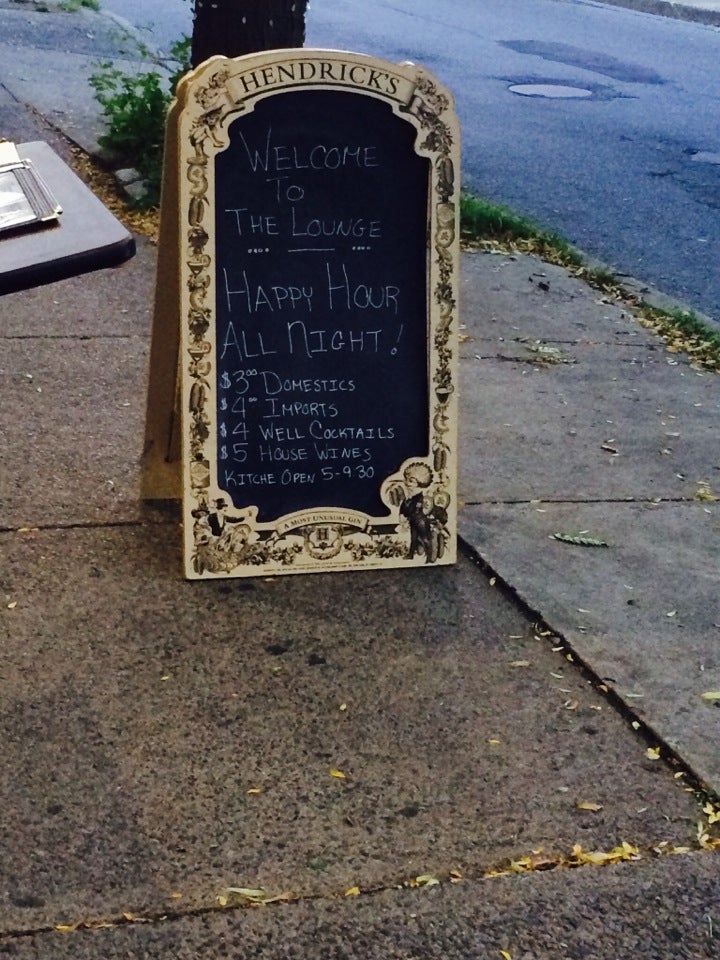 HENDRICK'S
WELCOME
TO
THE LOUNGE
HAPPY HOUR
ALL NIGHT!
$3⁰⁰ DOMESTICS
$4⁰⁰ IMPORTS
$4 WELL COCKTAILS
$5 HOUSE WINES
KITCHE OPEN 5-9.30
A MOST UNUSUAL GIN
H